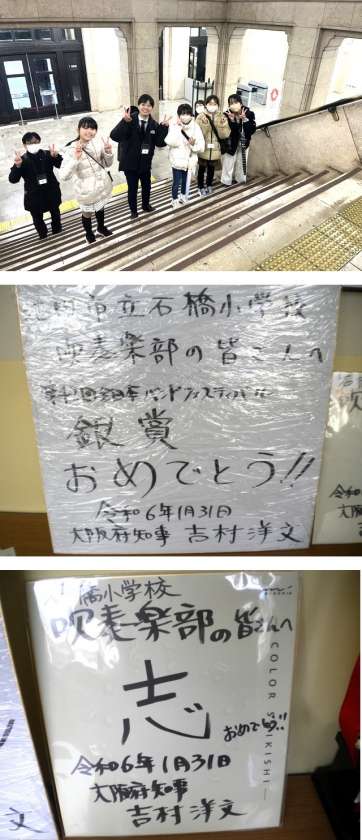 池田市立石橋小学校
吹奏楽部の皆さんへ
全日本バンドフェスティバル
銀賞
おめでとう!!
令和6年1月31日
大阪府知事 吉村洋文
令和
大阪
橋小学校
吹奏楽部の皆さんへ
志
おめでとう!!
令和6年1月31日
大阪府知事
吉村洋文
COLOR SHIKISHI
文